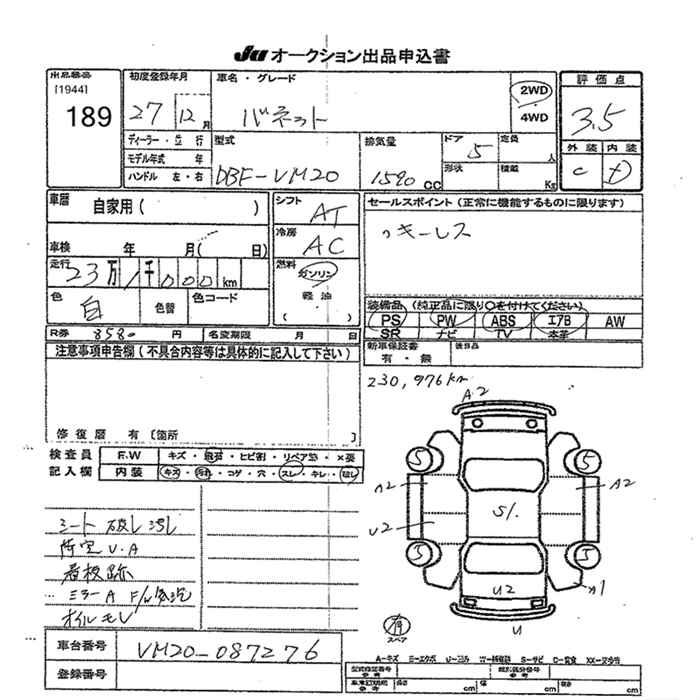 JU オークション出品申込書
出品番号 初度登録年月 車名・グレード 2WD 4WD 評価点
[1944]
189 27 12月 バネット 3.5
外装 内装
C D
ディーラー・並行 型式 排気量 ドア 定員
モデル年式 年 形状 積載
ハンドル 左・右 DBF-VM20 1590 cc 5 人 Kg
車歴 自家用( ) シフト AT セールスポイント(正常に機能するものに限ります)
冷房 AC ・キーレス
車検 年 月( 日)
走行 23万1千000km 燃料 ガソリン
軽油
( )
色 白 色替 色コード 装備品(純正品に限り○を付けてください)
PS PW ABS エアB AW
SR ナビ TV 本革
R券 8580 円 名変期限 月 日
注意事項申告欄(不具合内容等は具体的に記入して下さい) 新車保証書 後日品
有・無
230,976km
修復歴 有〔箇所
検査員 F.W キズ・飛石・ヒビ割・リペア跡・×要
記入欄 内装 キズ・汚れ・コゲ・穴・スレ・キレ・破レ
A2
5 5
A2 A2
S1.
U2
5 5
U2 A1
U
シート 破レ 汚レ
所空 U.A
看板跡
ミラーA
オイルモレ
有
スペア
車台番号 VM20-087276
登録番号
A-キズ E-エクボ U-ヘコミ W-補修跡 S-サビ C-腐食 XX-交換済
型式指定番号 類別区分番号
参考
車東証明際 長さ cm 幅 cm 高さ cm